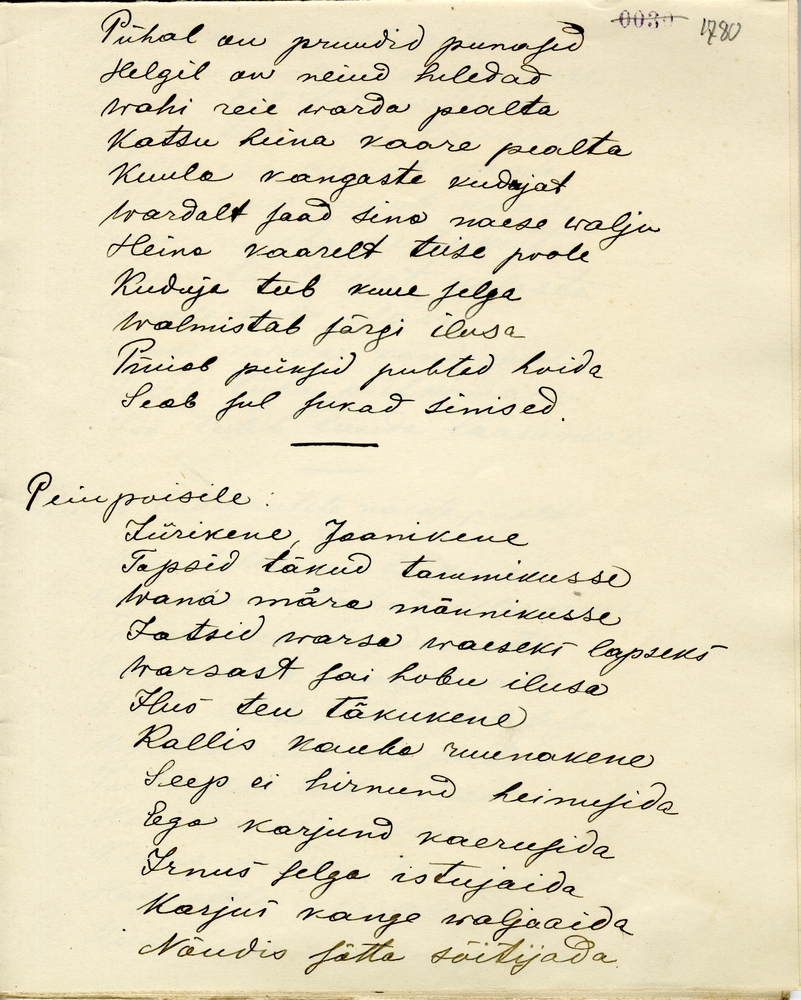 0030 1780
Pühal on pruudid punased
Helgil on neiud heledad
Wahi reie warda pealta
Katsu heina kaare pealta
Kuula kangaste kudujat
Wardalt saad sina naese walju
Heina kaarelt teise poole
Kuduja teeb kuue selga
Walmistab särgi ilusa
Püüab püksid puhted hoida
Seab sul sukad sinised.
Peiupoisile:
Jürikene, Jaanikene
Tapsid täkud tammikusse
Wana mära männikusse
Jätsid warsa waeseks lapseks
Warsast sai hobu ilusa
Ilus teu täkukene
Kallis kauba ruunakene
Seep ei hirnund heinusida
Ega karjund kaerusida
Irnus selga istujaida
Karjus kange waljaaida
Nõudis sõtta sõitijada.